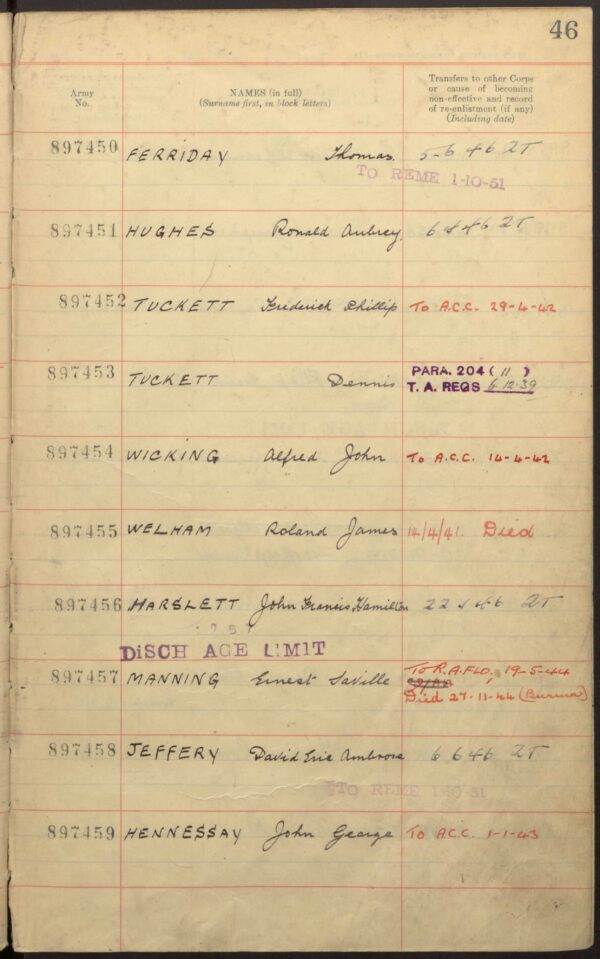 46
Army No.
NAMES (in full)
(Surname first, in block letters)
Transfers to other Corps
or cause of becoming
non-effective and record
of re-enlistment (if any)
(Including date)
897450 FERRIDAY Thomas. 5-6 46 ZT
TO REME 1-10-51
897451 HUGHES Ronald Aubrey. 46 ZT
897452 TUCKETT Frederick Phillip To A.C.C. 29-4-42
897453 TUCKETT Dennis PARA. 204 ( 11 )
T. A. REGS 6.12.39
897454 WICKING Alfred John To A.C.C. 14-4-42
897455 WELHAM Roland James 14/4/41. Died
897456 HARSLETT John Francis Hamilton 46 ZT
DISCH AGE LIMIT
897457 MANNING Ernest Saville To R.A.FLD, 19-5-44
Died 27-11-44 (Burma)
897458 JEFFERY David Eric Ambrose 6 6 46 ZT
TO REME 1-10-51
897459 HENNESSAY John George To ACC 1-1-43